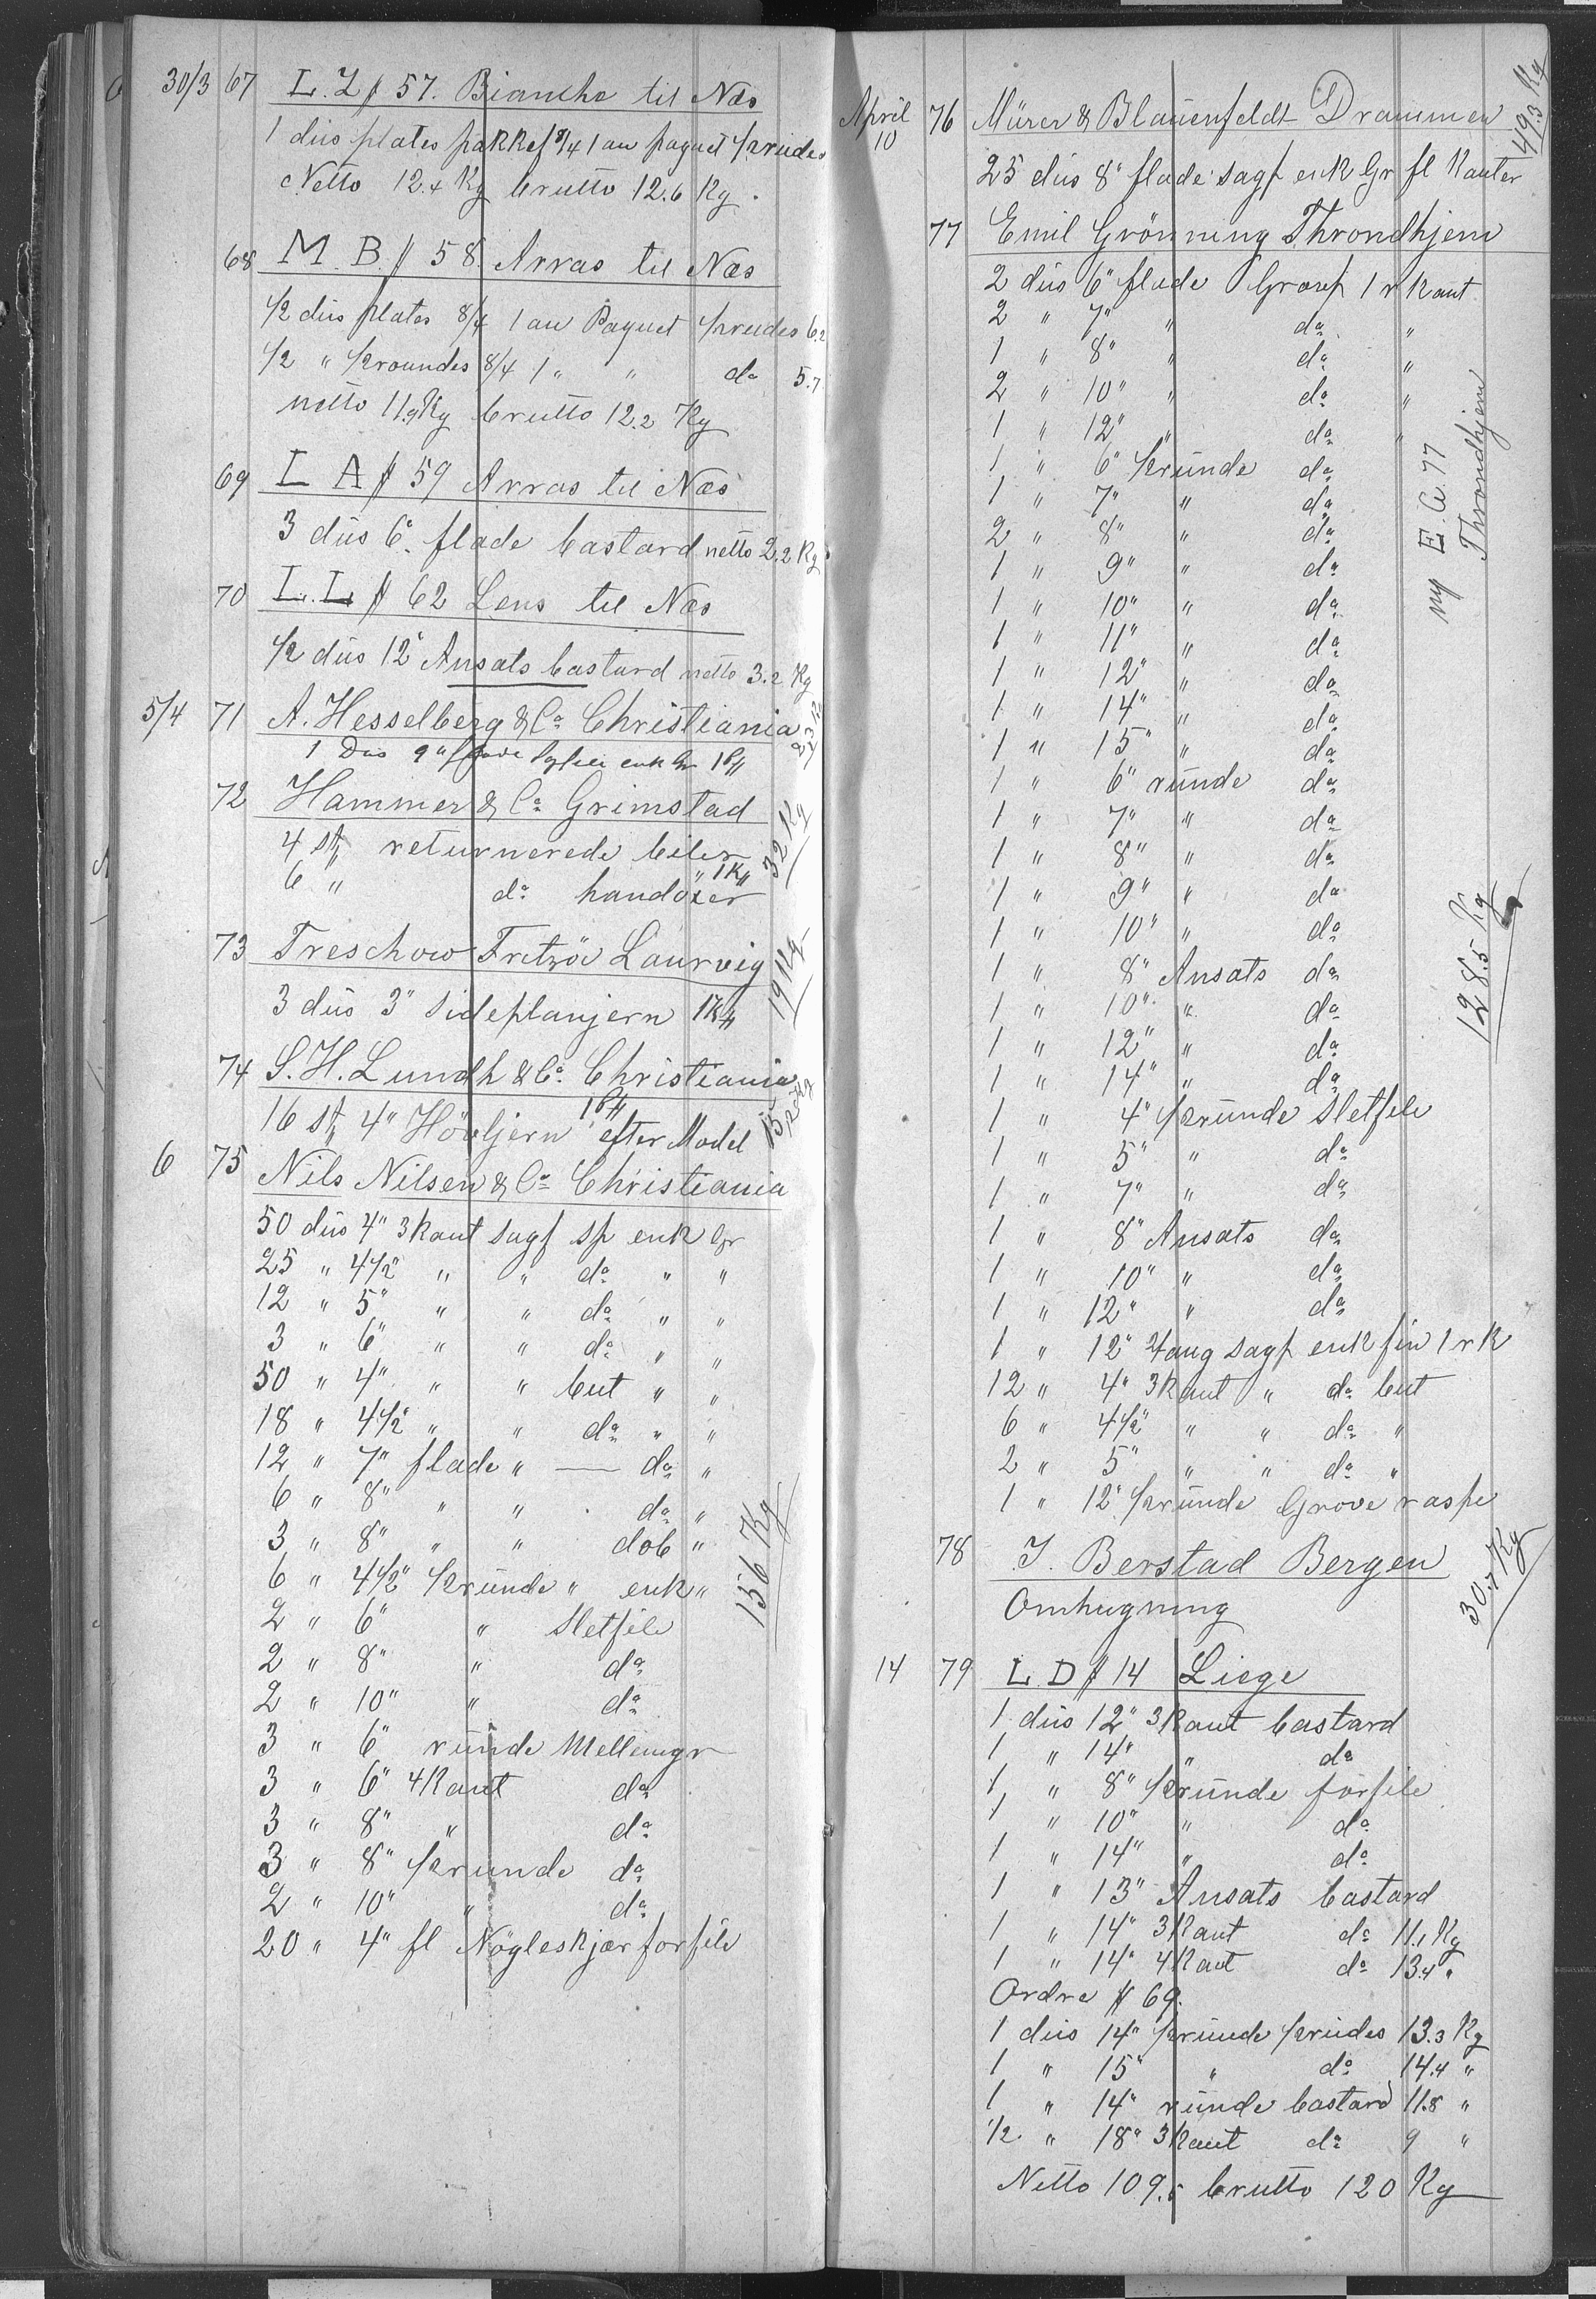 30/3 67 L. Z # 57. Bianche til Næs
1 dus plates pakkef 8/4 1 au paquet 1/2 rudes
Netto 12.4 Kg brutto 12.6 Kg.
68 M. B. # 58. Arras til Næs
1/2 dus plates 8/4 1 au Paquet 1/2 rudes 6.2
1/2 " 1/2 roundes 8/4 1 " " do 5.7
netto 11.9 Kg brutto 12.2 Kg
69 L A # 59 Arras til Næs
3 dus 6" flade bastard netto 2.2 Kg
70 L. L # 62 Lens til Næs
1/2 dus 12" Ansats bastard netto 3.2 Kg
5/4 71 A. Hesselberg & Co Christiania
1 Dus 9" enk Gr 1 P#
72 Hammer & Co Grimstad 32 Kg
4 st returnerede biler
6 " do handöxer " 1 K#
73 Treschow Fritzöe Laurvig 19 Kg
3 dus 3" Sideplanjern 1 K#
74 S. H. Lundh & Co. Christiania
16 st 4" Hövljern 1 P# efter Model
6 75 Nils Nilsen & Co Christiania
50 dus 4" 3kant sagf sp enk Gr
25 " 4 1/2" " " do " "
12 " 5" " " do " "
3 " 6" " " do " "
50 " 4" " " but " "
18 " 4 1/2" " " do " "
12 " 7" flade " — do "
6 " 8" " " do "
3 " 8" " " dob "
6 " 4 1/2" 1/2 runde " enk "
2 " 6" " Sletfile
2 " 8" " do
2 " 10" " do
3 " 6" runde Mellemgr
3 " 6" 4kant do
3 " 8" " do
3 " 8" 1/2 runde do
2 " 10" " do
20 " 4" fl Nögleskjær forfile
156 Kg
April 10 76 Mürer & Blauenfeldt Drammen 49.3 Kg
25 dus 8" flade sagf enk Gr fl Kanter
77 Emil Grönning Throndhjem
2 dus 6" flade Grovf 1 r Kant
2 " 7" " do "
1 " 8" " do "
2 " 10" " do "
1 " 12" " do "
1 " 6" 1/2 runde do
1 " 7" " do
2 " 8" " do
1 " 9" " do
1 " 10" " do
1 " 11" " do
1 " 12" " do
1 " 14" " do
1 " 15" " do
1 " 6" runde do
1 " 7" " do
1 " 8" " do
1 " 9" " do
1 " 10" " do
1 " 8" Ansats do
1 " 10" " do
1 " 12" " do
1 " 14" " do
1 " 4" 1/2 runde Sletfile
1 " 5" " do
1 " 7" " do
1 " 8" Ansats do
1 " 10" " do
1 " 12" " do
1 " 12" sagf enk fin 1 r K
12 " 4" 3kant " do but
6 " 4 1/2" " " do "
2 " 5" " " do "
1 " 12" 1/2 runde Grove raspe
E. G. 77
Throndhjem
128.5 Kg
78 J. Berstad Bergen 30.7 Kg
Omhugning
14 79 L. D # 14 Liege
1 dus 12" 3kant bastard
1 " 14" " do
1 " 8" 1/2 runde forfile
1 " 10" " do
1 " 14" " do
1 " 13" Ansats bastard
1 " 14" 3kant do 11.1 Kg
1 " 14" 4kant do 13.4 "
Ordre # 69.
1 dus 14" 1/2 runde 1/2 rudes 13.3 Kg
1 " 15" " do 14.4 "
1 " 14" runde bastard 11.8 "
1/2 " 18" 3kant do 9 "
Netto 109.5 brutto 120 Kg